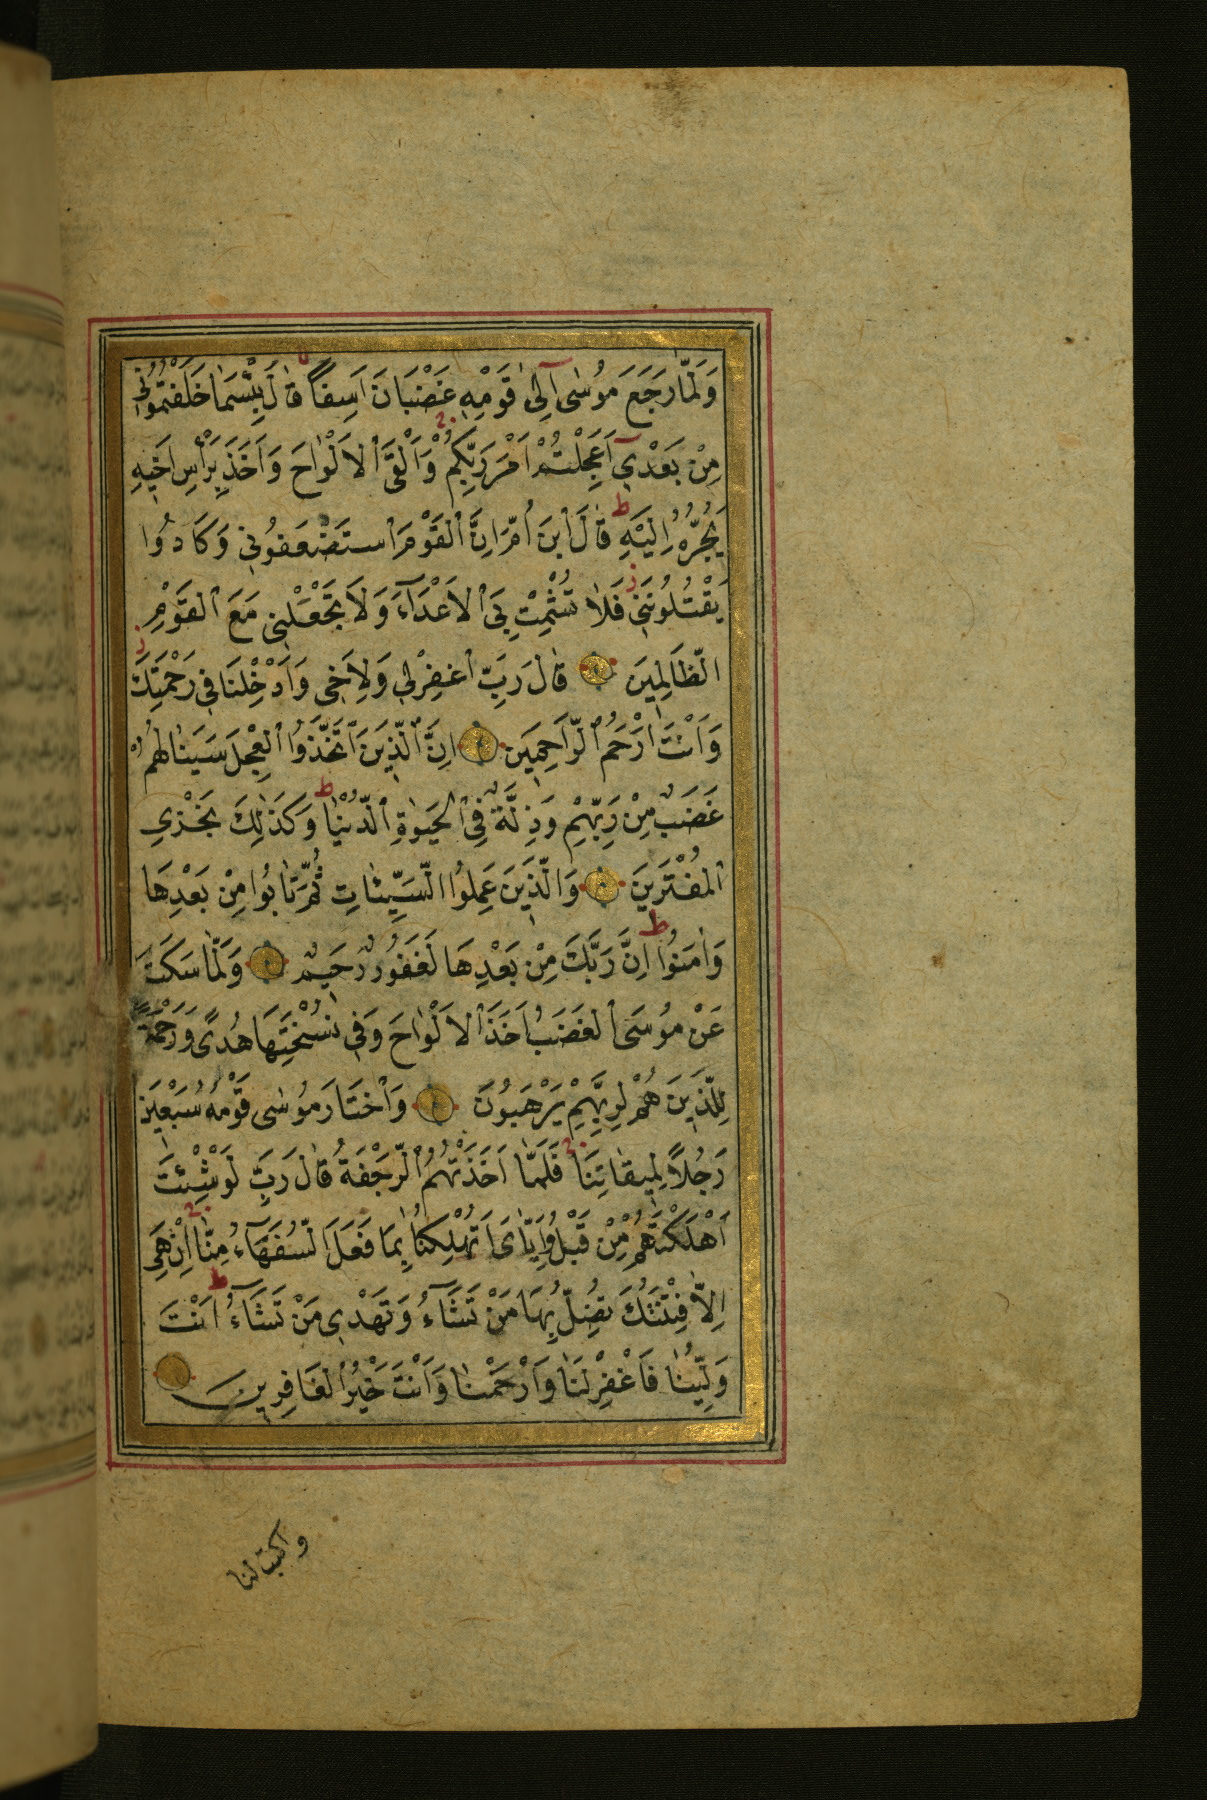 وَلَمَّا رَجَعَ مُوسٰى اِلٰى قَوْمِهٖ غَضْبَانَ اَسِفًا قَالَ بِئْسَمَا خَلَفْتُمُونٖى
مِنْ بَعْدٖى اَعَجِلْتُمْ اَمْرَ رَبِّكُمْ وَاَلْقَى الْاَلْوَاحَ وَاَخَذَ بِرَأْسِ اَخٖيهِ
يَجُرُّهُ اِلَيْهِ قَالَ ابْنَ اُمَّ اِنَّ الْقَوْمَ اسْتَضْعَفُونٖى وَكَادُوا
يَقْتُلُونَنٖى فَلَا تُشْمِتْ بِىَ الْاَعْدَاءَ وَلَا تَجْعَلْنٖى مَعَ الْقَوْمِ
الظَّالِمٖينَ قَالَ رَبِّ اغْفِرْلٖى وَلِاَخٖى وَاَدْخِلْنَا فٖى رَحْمَتِكَ
وَاَنْتَ اَرْحَمُ الرَّاحِمٖينَ اِنَّ الَّذٖينَ اتَّخَذُوا الْعِجْلَ سَيَنَالُهُمْ
غَضَبٌ مِنْ رَبِّهِمْ وَذِلَّةٌ فِى الْحَيٰوةِ الدُّنْيَا وَكَذٰلِكَ نَجْزِى
الْمُفْتَرٖينَ وَالَّذٖينَ عَمِلُوا السَّيِّئَاتِ ثُمَّ تَابُوا مِنْ بَعْدِهَا
وَاٰمَنُوا اِنَّ رَبَّكَ مِنْ بَعْدِهَا لَغَفُورٌ رَحٖيمٌ وَلَمَّا سَكَتَ
عَنْ مُوسَى الْغَضَبُ اَخَذَ الْاَلْوَاحَ وَفٖى نُسْخَتِهَا هُدًى وَرَحْمَةٌ
لِلَّذٖينَ هُمْ لِرَبِّهِمْ يَرْهَبُونَ وَاخْتَارَ مُوسٰى قَوْمَهُ سَبْعٖينَ
رَجُلًا لِمٖيقَاتِنَا فَلَمَّا اَخَذَتْهُمُ الرَّجْفَةُ قَالَ رَبِّ لَوْ شِئْتَ
اَهْلَكْتَهُمْ مِنْ قَبْلُ وَاِيَّاىَ اَتُهْلِكُنَا بِمَا فَعَلَ السُّفَهَاءُ مِنَّا اِنْ هِىَ
اِلَّا فِتْنَتُكَ تُضِلُّ بِهَا مَنْ تَشَاءُ وَتَهْدٖى مَنْ تَشَاءُ اَنْتَ
وَلِيُّنَا فَاغْفِرْلَنَا وَارْحَمْنَا وَاَنْتَ خَيْرُ الْغَافِرٖينَ
واكتب لنا